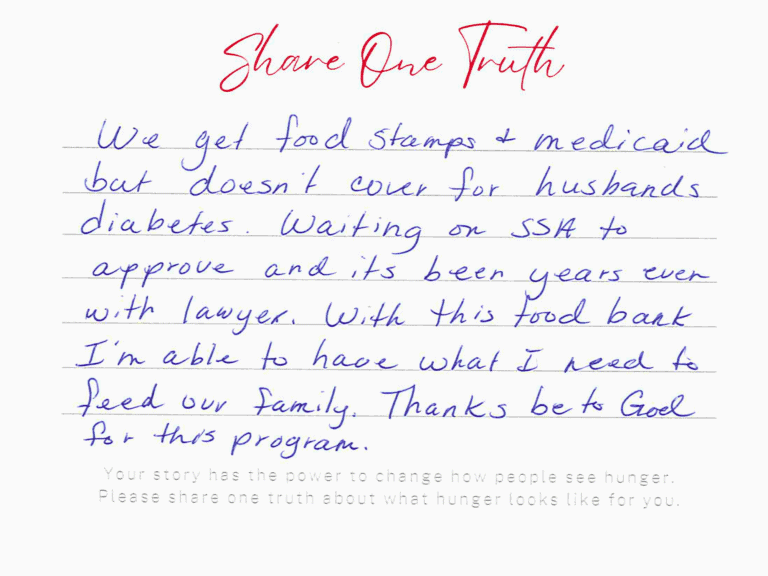 Share One Truth
We get food stamps + medicaid
but doesn't cover for husbands
diabetes. Waiting on SSA to
approve and its been years even
with lawyer. With this food bank
I'm able to have what I need to
feed our family. Thanks be to God
for this program.
Your story has the power to change how people see hunger.
Please share one truth about what hunger looks like for you.